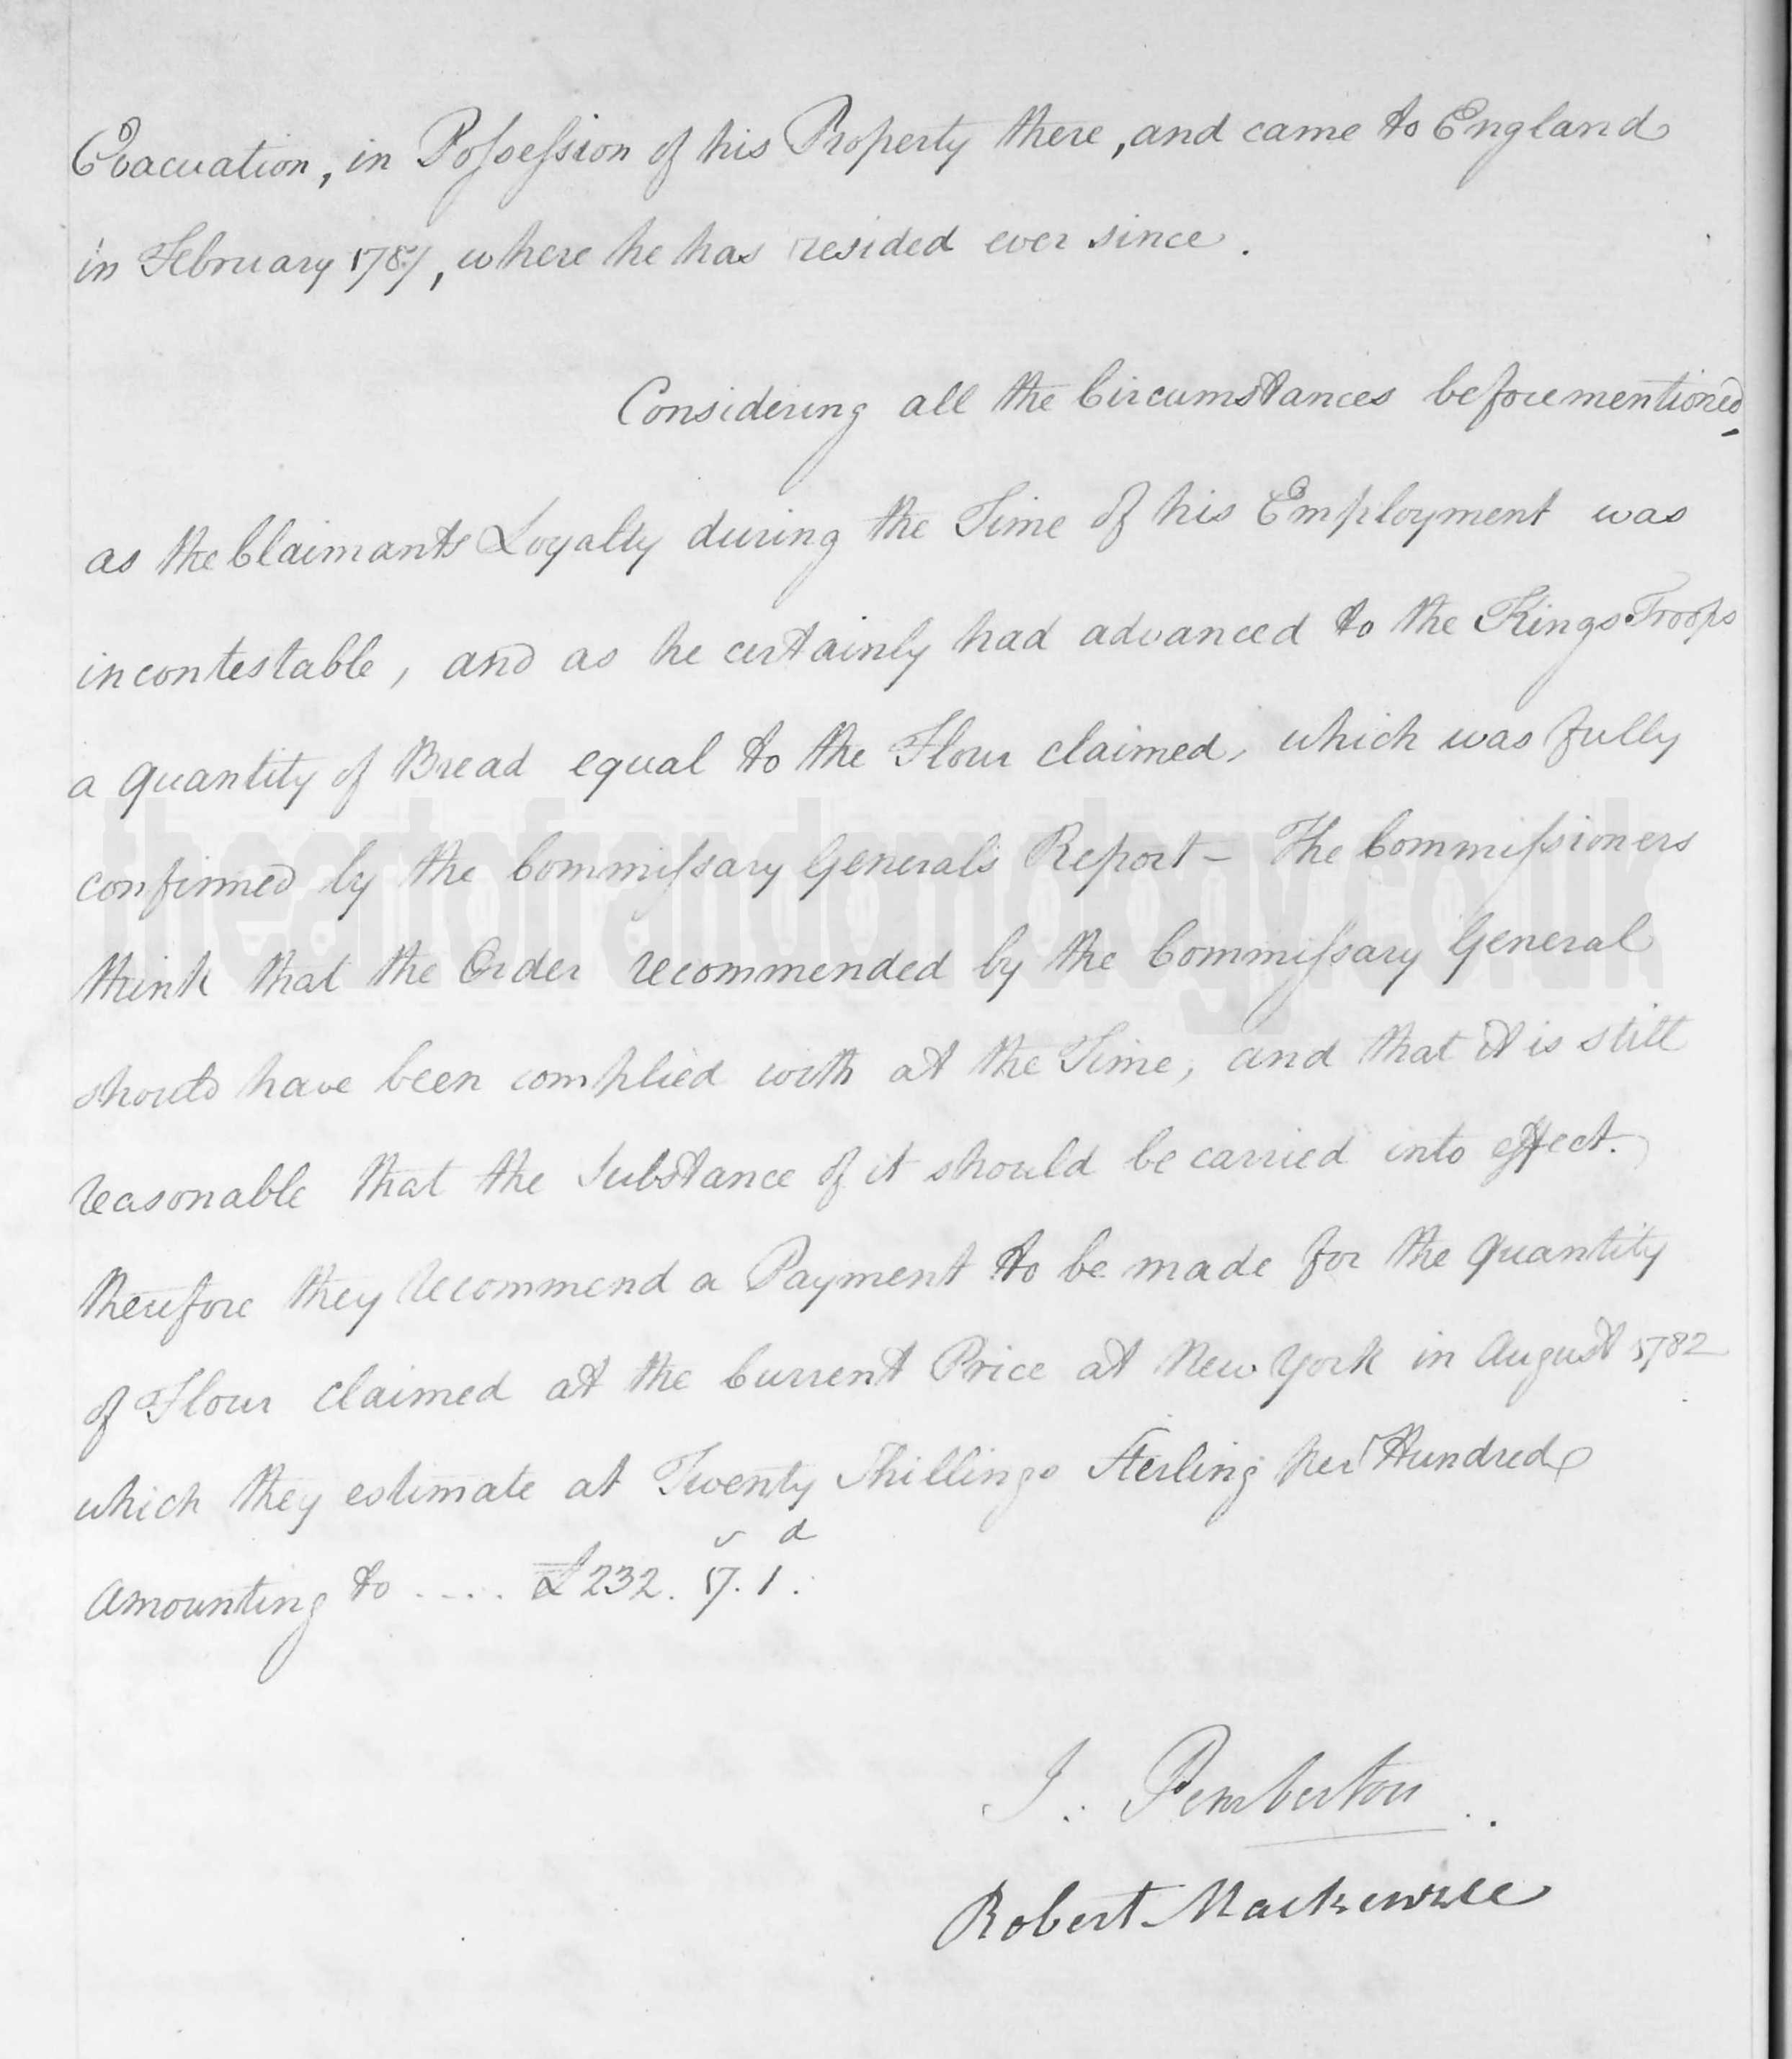 Evacuation, in Possession of his Property there, and came to England
in February 1787, where he has resided ever since.
Considering all the Circumstances beforementioned,
as the Claimants Loyalty during the Time of his Employment was
incontestable, and as he certainly had advanced to the Kings Troops
a quantity of Bread equal to the Flour claimed, which was fully
confirmed by the Commissary General's Report – The Commissioners
think that the Order recommended by the Commissary General
should have been complied with at the Time, and that it is still
reasonable that the Substance of it should be carried into effect.
therefore they recommend a Payment to be made for the quantity
of Flour claimed at the Current Price at New York in August 1782
which they estimate at Twenty Shillings Sterling per Hundred
s d
Amounting to .... £232. 17. 1.
J. Pemberton
Robert Mackenzie
theartofrandomology.co.uk